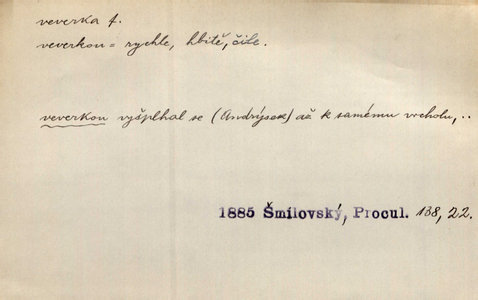 veverka f.
veverkou = rychle, hbitě, čile.
veverkou vyšplhal se (Andrýsek) až k samému vrcholu, ..
1885 Šmilovský, Procul. 138, 22.